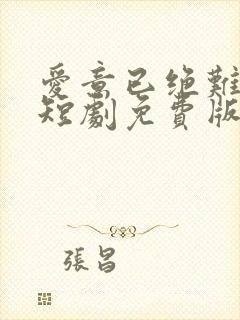 愛意已绝難
短劇免費版
張昌